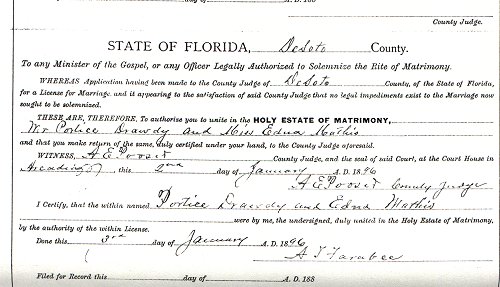 County Judge.
STATE OF FLORIDA, DeSoto County.
To any Minister of the Gospel, or any Officer Legally Authorized to Solemnize the Rite of Matrimony.
WHEREAS Application having been made to the County Judge of DeSoto County, of the State of Florida,
for a License for Marriage, and it appearing to the satisfaction of said County Judge that no legal impediments exist to the Marriage now
sought to be solemnized.
THESE ARE, THEREFORE, To authorize you to unite in the HOLY ESTATE OF MATRIMONY,
Mr Portice Drawdy and Miss Edna Mathis
and that you make return of the same, duly certified under your hand, to the County Judge aforesaid.
WITNESS, A E Pooser County Judge, and the seal of said Court, at the Court House in
Arcadia, this 2nd day of January A. D. 1896
A E Pooser County Judge
I Certify, that the within named Portice Drawdy and Edna Mathis
were by me, the undersigned, duly united in the Holy Estate of Matrimony,
by the authority of the within License.
Done this 3rd day of January A. D. 1896
A J Farabee
Filed for Record this day of A. D. 188